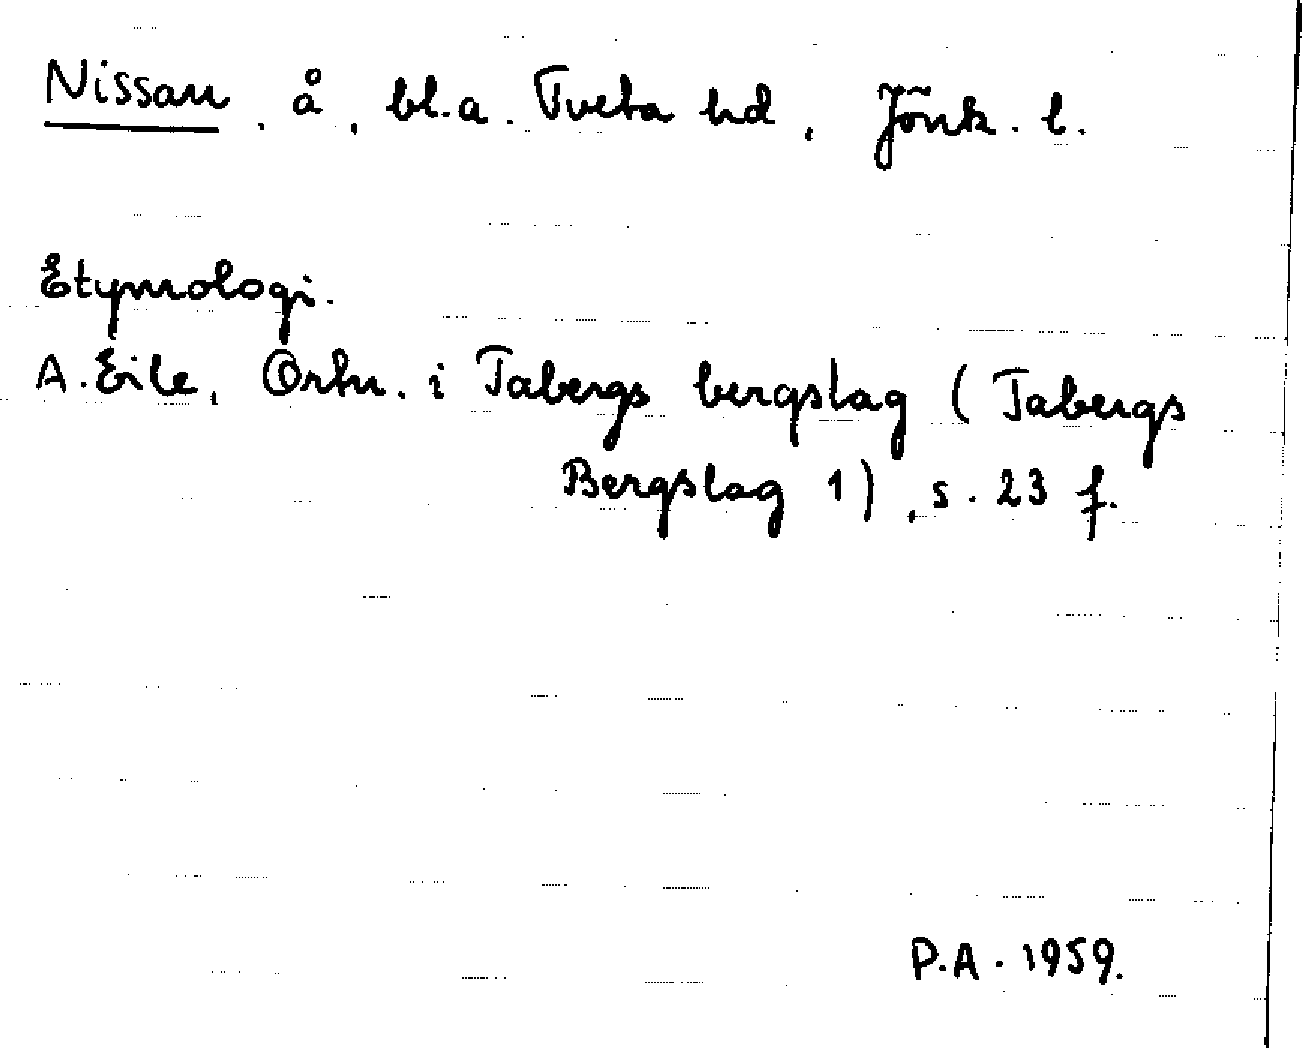 Nissan, å, bl.a. Tveta hd, Jönk. l.
Etymologi.
A. Eile, Ortn. i Tabergs bergslag (Tabergs
Bergslag 1), s. 23 f.
P.A. 1959.